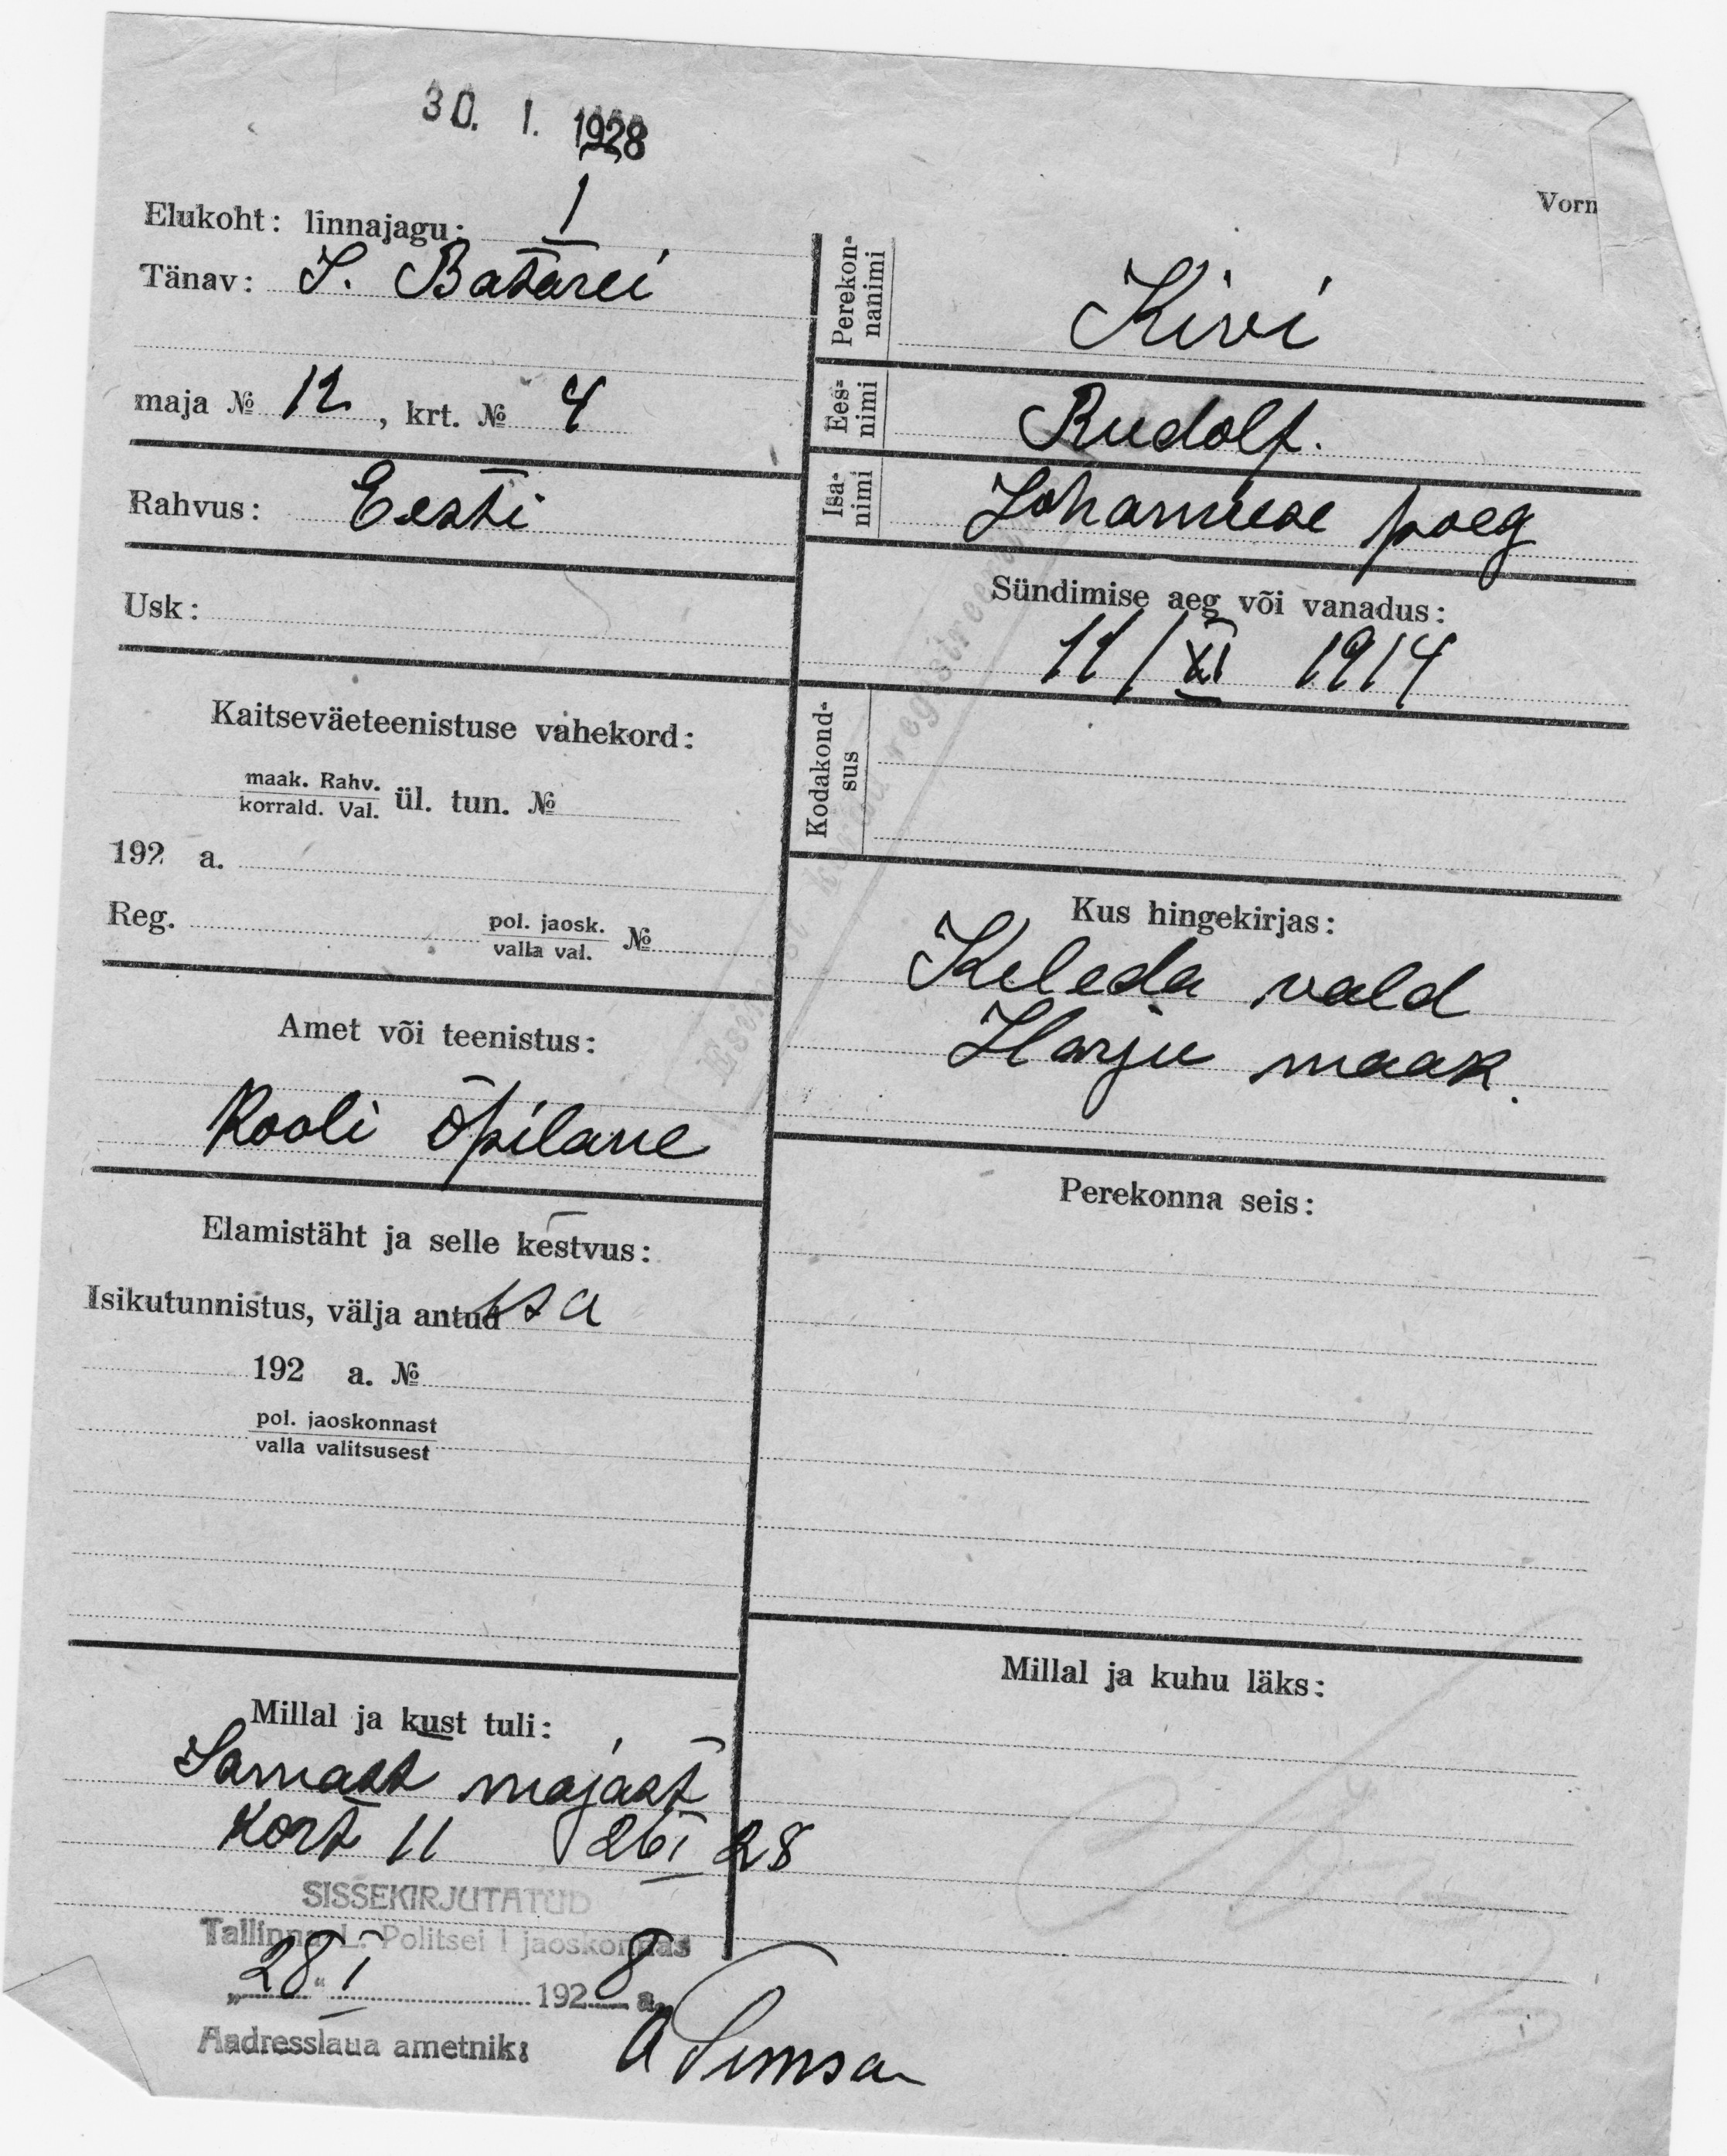 30. 1. 1928
Vorn
Elukoht: linnajagu: I
Tänav: S. Batarei
maja № 12, krt. № 4
Rahvus: Eesti
Usk:
Kaitseväeteenistuse vahekord:
maak. Rahv.
korrald. Val. ül. tun. №
192 a.
Reg. pol. jaosk.
valla val. №
Amet või teenistus:
Kooli õpilane
Elamistäht ja selle kestvus:
Isikutunnistus, välja antud isa
192 a. №
pol. jaoskonnast
valla valitsusest
Millal ja kust tuli:
Samast majast
Kort 11 26 I 28
SISSEKIRJUTATUD
Tallinna L. Politsei I jaoskonnas
„28“ I 1928 a.
Aadresslaua ametnik:
Perekon-
nanimi Kivi
Ees-
nimi Rudolf.
Isa-
nimi Johannese poeg
Sündimise aeg või vanadus:
11/XI 1914
Kodakond-
sus
Kus hingekirjas:
vald
Harju maak.
Perekonna seis:
Millal ja kuhu läks: